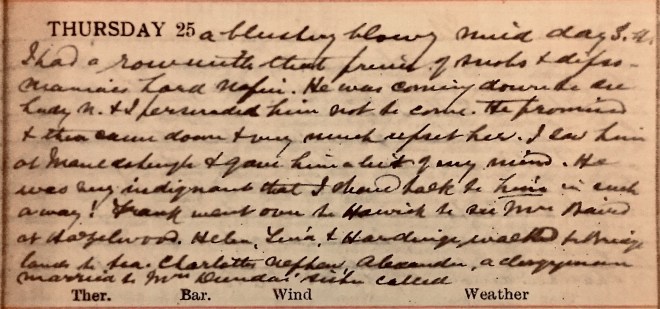 THURSDAY 25 a blustery blowy mid day S.W.
I had a row with that prince of snobs & dipso-
maniacs Lord Napier. He was coming down to see
Lady N. & I persuaded him not to come. He promised
& then came down & very much upset her. I saw him
at & gave him a bit of my mind. He
was very indignant that I should talk to him in such
a way! Frank went over to Hawick to see Mrs Baird
at Hazelwood. Helen, Lena, & Hardinge, walked to Bridge
lands to tea. Charlotte's nephew, Alexander, a clergyman
married to Mrs Dundas' sister called
Ther. Bar. Wind Weather